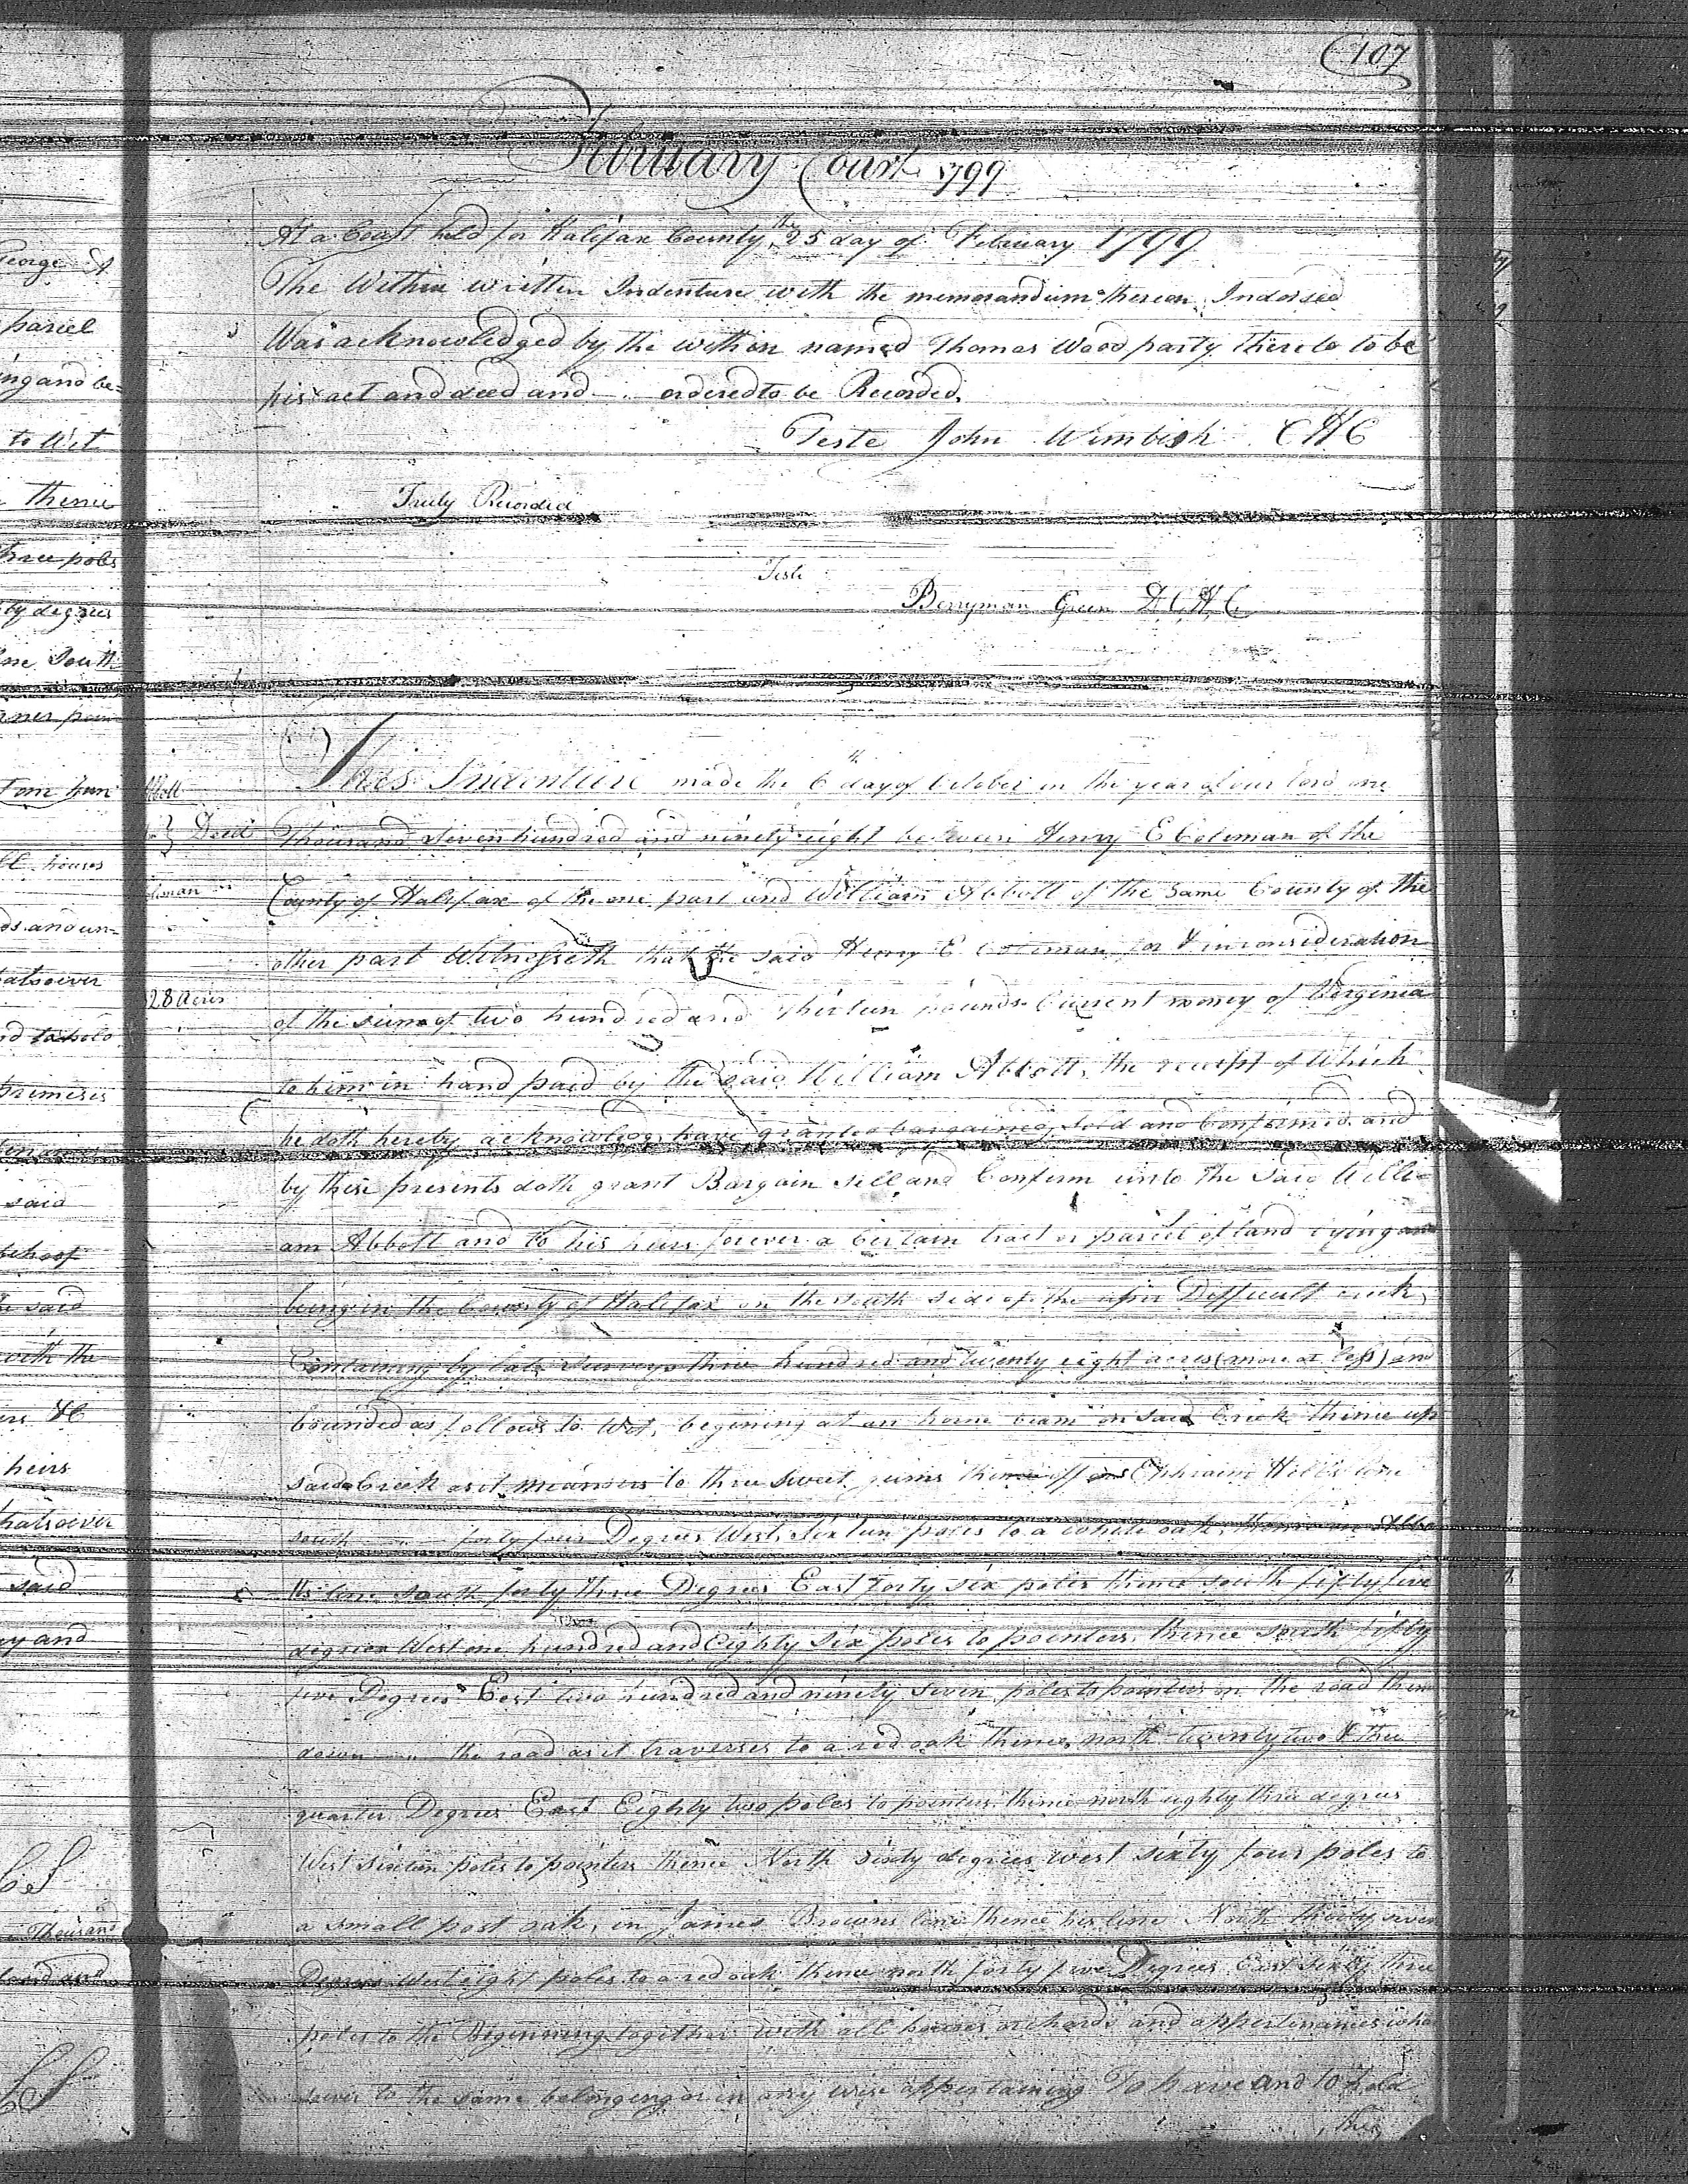 107
February Court 1799
At a Court held for Halifax County the 25 day of February 1799
The Within written Indenture with the memorandum thereon Indorsed
Was acknowledged by the within named Thomas Wood party thereto to be
his act and deed and ordered to be Recorded.
Teste John Wimbish CHC
Truly Recorded
Teste
Berryman Green DCHC
This Indenture made the 6th day of October in the year of our lord one
Thousand seven hundred and ninety eight between Henry E Coleman of the
County of Halifax of the one part and William Abbott of the same County of the
other part Witnesseth that the said Henry E Coleman for & in consideration
of the sum of two hundred and Thirteen pounds Current money of Virginia
to him in hand paid by the said William Abbott, the receipt of Which
he doth hereby acknowledge, have granted bargained, sold and Confirmed and
by these presents doth grant Bargain sell and Confirm unto the said Willi-
am Abbott and to his heirs forever a certain tract or parcel of land lying and
being in the County of Halifax on the south side of the upper Difficult creek,
Containing by late survey three hundred and twenty eight acres (more or less) and
bounded as follows to Wit, begining at an horne beam on said Creek thence up
said Creek as it meanders to three sweet gums thence off on Ephraim Hill's line
south forty four Degrees West, sixteen poles to a white oak, thence on Abbo
tts line south forty three Degrees East forty six poles thence south fifty five
degrees West one hundred and Eighty six poles to pointers, thence south fifty
five Degrees East two hundred and ninety seven poles to pointers on the road then
down the road as it traverses to a red oak thence, north twenty two & three
quarter Degrees East Eighty two poles to pointers thence north eighty three degrees
West sixteen poles to pointers thence North sixty degrees west sixty four poles to
a small post oak, in James Browns line thence his line North thirty seven
Degrees West eight poles to a red oak thence north forty five Degrees East sixty three
poles to the Beginning together with all houses orchards and appertinances what
soever to the same belonging or in any wise appertaining To have and to hold
the
Deed
28 Acres
George
parcel
ing and be-
to Wit
thence
three poles
by degrees
south
houses
atsoever
and to hold
premises
said
behoof
said
with the
heirs
hatsoever
said
and
Thousand